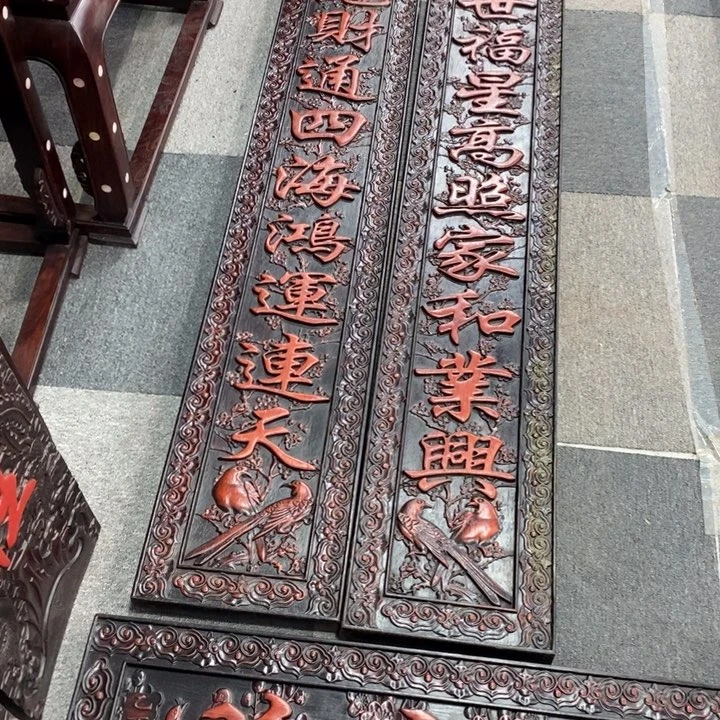 世福星高照家和業興
財通四海鴻運連天